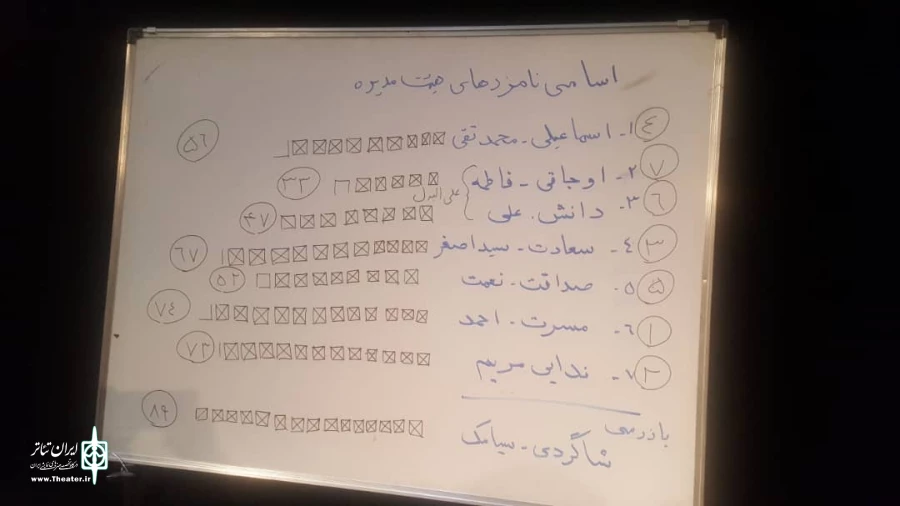 اسامی نامزدهای هیئت مدیره
۴ ۱- اسماعیلی - محمد تقی ۵۶
۷ ۲- اوجاقی - فاطمه ۳۳
علی البدل
۶ ۳- دانش . علی ۴۷
۳ ۴- سعادت - سید اصغر ۶۷
۵ ۵- صداقت - نعمت ۵۲
۱ ۶- مسرت - احمد ۷۴
۲ ۷- ندایی مریم ۷۲
بازرسی
شاگردی - سیامک ۸۹
ایران تئاتر
www.Theater.ir